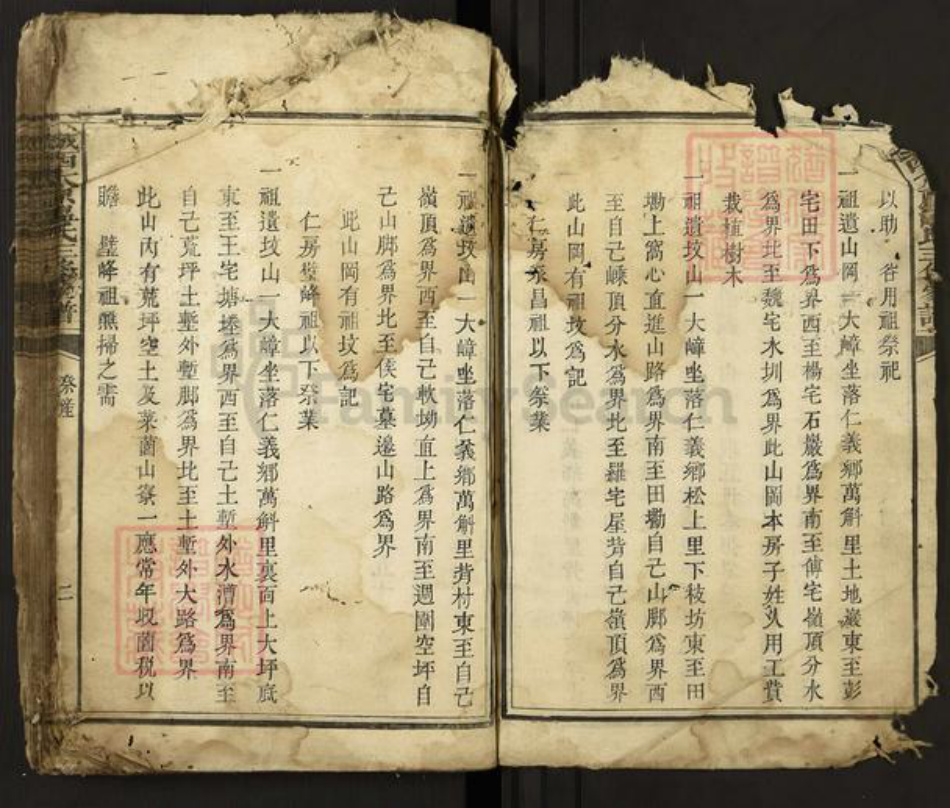 以助　谷用祖祭祀
一祖遺山岡一大嶂坐落仁義鄉萬斛里土地巖東至彭
宅田下爲界西至楊宅石巖爲界南至傅宅嶺頂分水
爲界北至魏宅水圳爲界此山岡本房子姓乂用工貲
栽植樹木
一祖遺坟山一大嶂坐落仁義鄉松上里下枝坊東至田
墈上窩心直進山路爲界南至田墈自己山脚爲界西
至自己嵊頂分水爲界北至羅宅屋背自己嶺頂爲界
此山岡有祖坟爲記
仁房永昌祖以下祭業
一祖遺坟山一大嶂坐落仁義鄉萬斛里背村東至自己
嶺頂爲界西至自己軟坳直上爲界南至週圍空坪自
己山脚爲界北至侯宅墓邊山路爲界
此山岡有祖坟爲記
仁房璧峰祖以下祭業
一祖遺坟山一大嶂坐落仁義鄉萬斛里裏面上大坪底
東至王宅塘塍爲界西至自己土塹外水漕爲界南至
自己荒坪土塹外塹脚爲界北至土塹外大路爲界
此山內有荒坪空土及菜薗山寮一應常年収薗稅以
贍　璧峰祖醮掃之需
祭產
二
Family Search